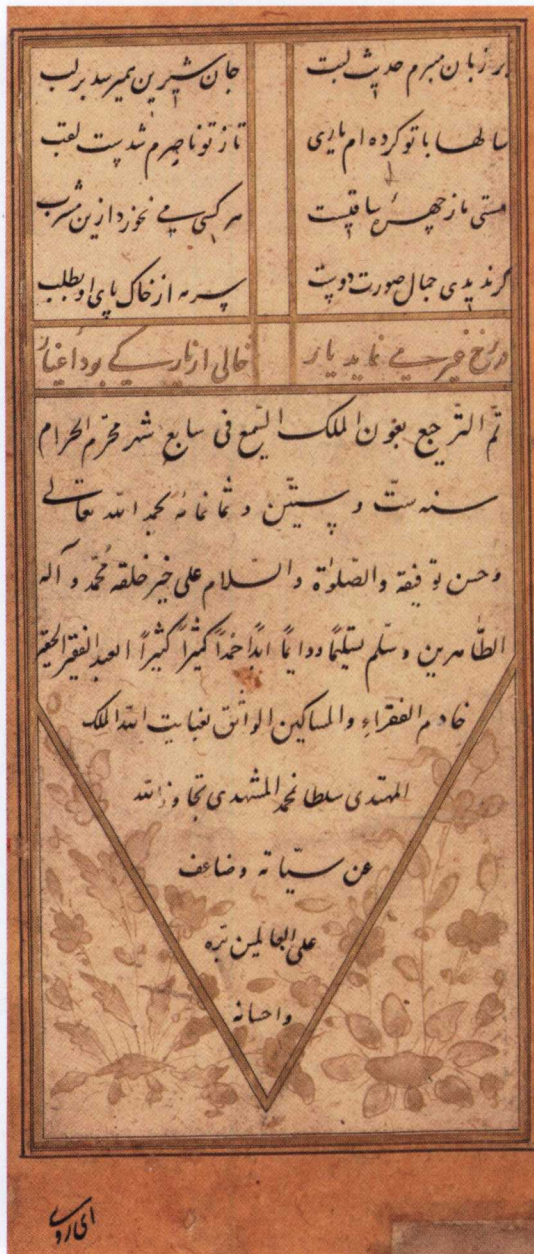 بر زبان میبرم حدیث لبت جان شیرین همیرسد بر لب
سالها با تو کرده ام یاری تا ز تو ناصرم شدست لقب
مستی ما ز چهرهٔ ساقیست هر کسی می نخورد ازین مشرب
گر ندیدی جمال صورت دوست پس به از خاک پای او بطلب
در رخ غیر می نماید یار خالی از یار کی بود اغیار
تمّ الترجیع بعون الملک السّمع فی سابع شهر محرّم الحرام
سنه ستّ و ستّین و ثمانمائه بحمد الله تعالی
و حسن توفیقه والصّلوٰة والسّلام علی خیر خلقه محمّد و آله
الطّاهرین و سلّم تسلیمًا دایمًا ابدًا حمدًا کثیرًا کثیرًا العبد الفقیر الحقیر
خادم الفقراء والمساکین الواثق بعنایت الله الملک
المهتدی سلطانمحمد المشهدی تجاوز الله
عن سیّاته و ضاعف
علی العالمین برّه
و احسانه
ای روی